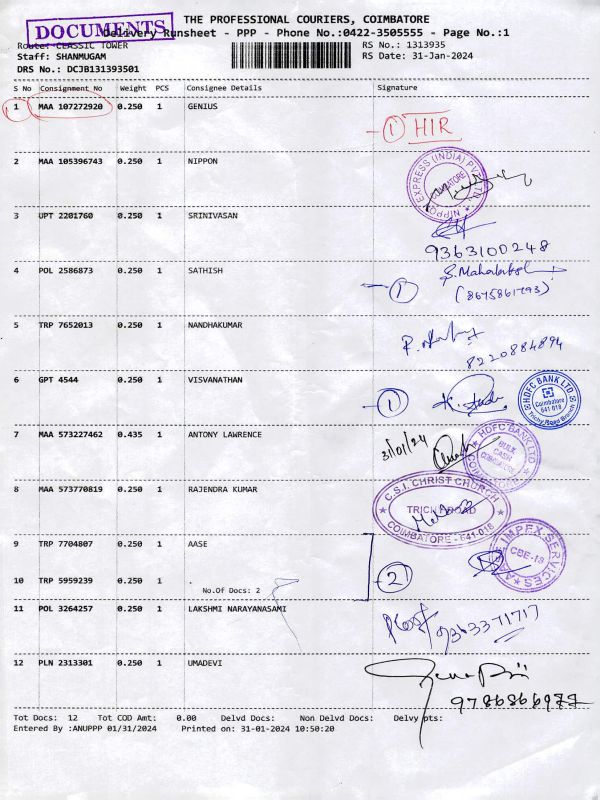 THE PROFESSIONAL COURIERS, COIMBATORE
DOCUMENTS
Delivery Runsheet - PPP - Phone No.:0422-3505555 - Page No.:1
Route: CLASSIC TOWER
RS No.: 1313935
Staff: SHANMUGAM
RS Date: 31-Jan-2024
DRS No.: DCJB131393501
S No Consignment No Weight PCS Consignee Details Signature
1 MAA 107272920 0.250 1 GENIUS
1 HIR
2 MAA 105396743 0.250 1 NIPPON
NIPPON EXPRESS (INDIA) PVT LTD
COIMBATORE
3 UPT 2201760 0.250 1 SRINIVASAN
9363100248
4 POL 2586873 0.250 1 SATHISH
1
(8675861793)
5 TRP 7652013 0.250 1 NANDHAKUMAR
8220884894
6 GPT 4544 0.250 1 VISVANATHAN
1
HDFC BANK LTD
Coimbatore
641 018
Trichy Road Branch
7 MAA 573227462 0.435 1 ANTONY LAWRENCE
31/01/24
HDFC BANK LTD
BULK
CASH
COIMBATORE
8 MAA 573770819 0.250 1 RAJENDRA KUMAR
C.S.I. CHRIST CHURCH
TRICHY ROAD
COIMBATORE - 641 018
9 TRP 7704807 0.250 1 AASE
IMPEX SERVICES
CBE-18
10 TRP 5959239 0.250 1 .
No.Of Docs: 2
2
11 POL 3264257 0.250 1 LAKSHMI NARAYANASAMI
9363371717
12 PLN 2313301 0.250 1 UMADEVI
Tot Docs: 12 Tot COD Amt: 0.00 Delvd Docs: Non Delvd Docs: Delvy pts:
Entered By :ANUPPP 01/31/2024 Printed on: 31-01-2024 10:50:20